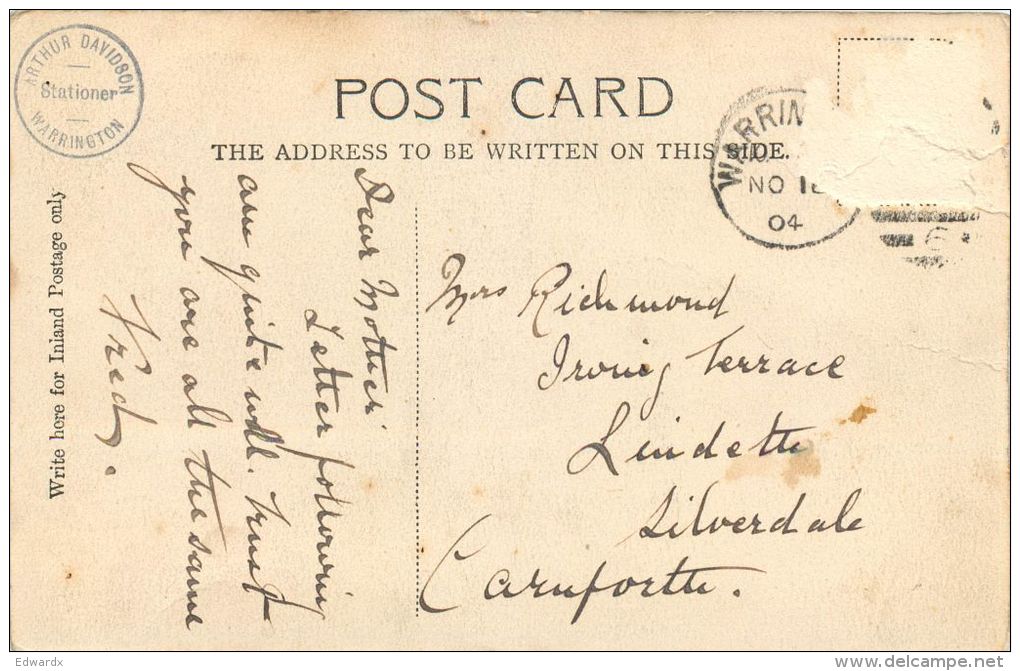 ARTHUR DAVIDSON
Stationer
WARRINGTON
POST CARD
THE ADDRESS TO BE WRITTEN ON THIS SIDE.
WARRIN
NO 18
04
6
Write here for Inland Postage only
Dear Mother
Letter following
am quite well. Trust
you are all the same
Fred.
Mrs Richmond
Irving Terrace
Lindeth
Silverdale
Carnforth.
Edwardx
www.delcampe.net